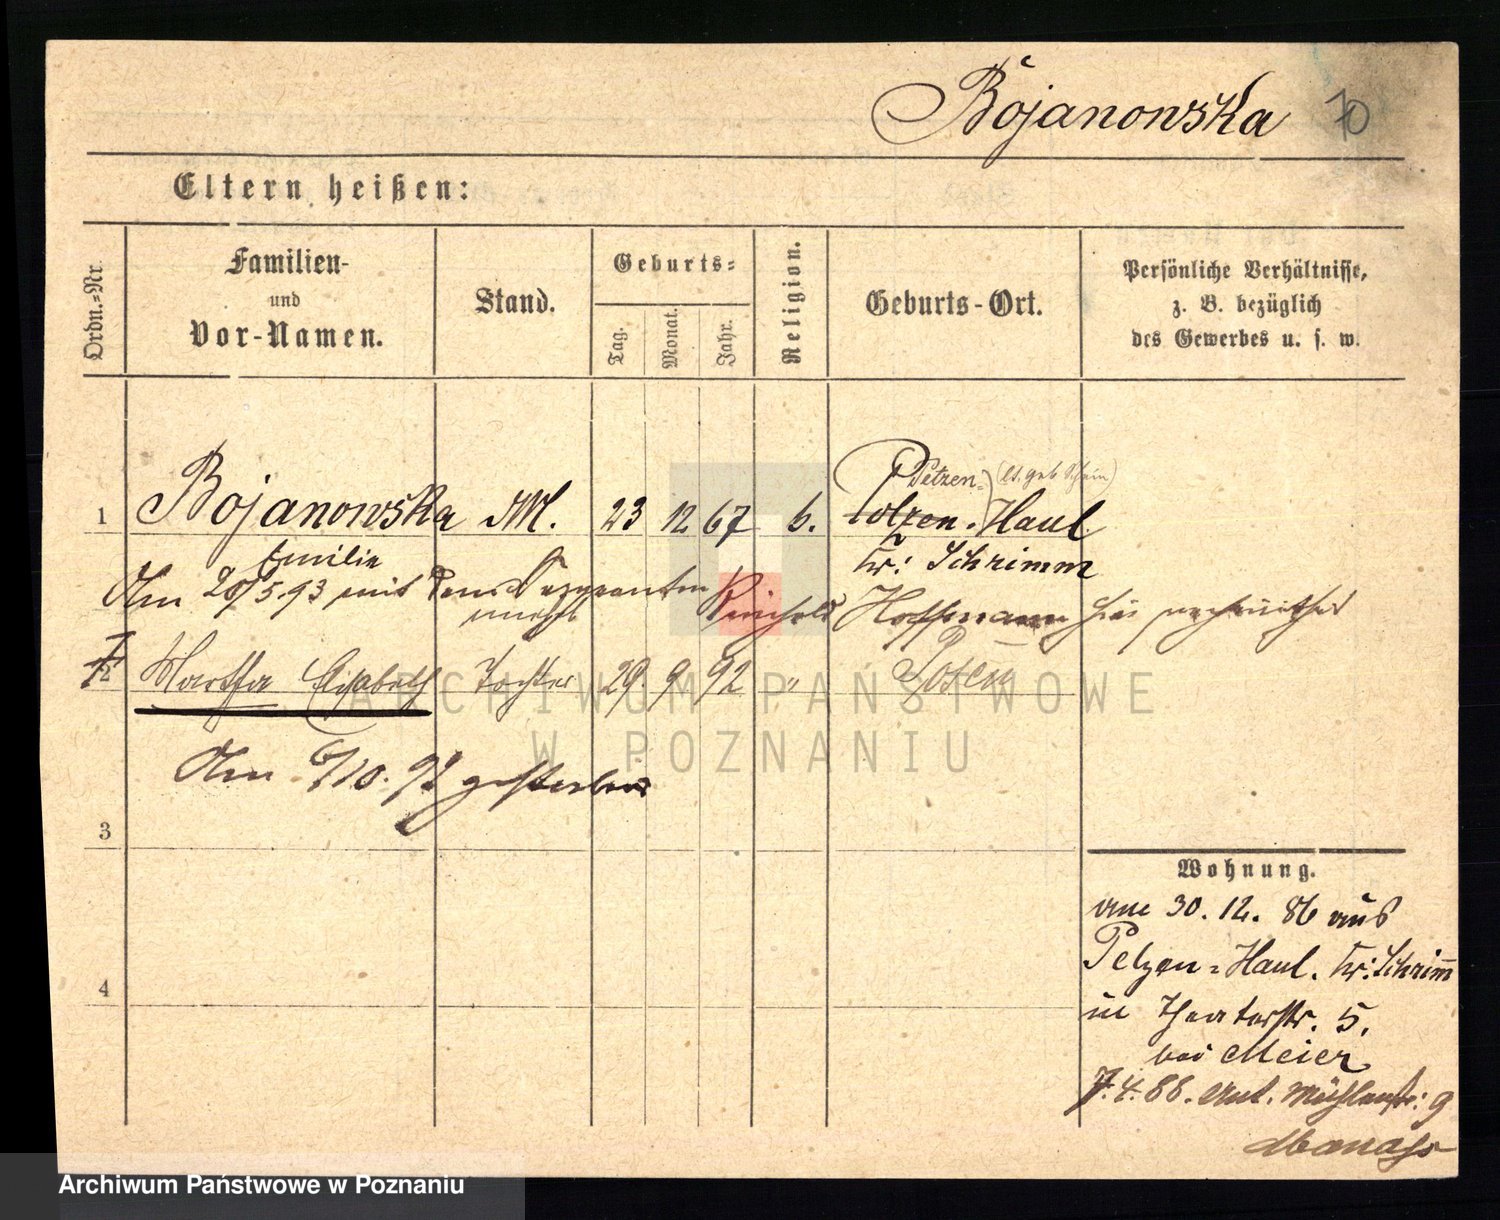 Bojanowska 70
Eltern heißen:
Ordn.-Nr.
Familien-
und
Vor-Namen.
Stand.
Geburts-
Tag.
Monat.
Jahr.
Religion.
Geburts-Ort.
Persönliche Verhältnisse,
z. B. bezüglich
des Gewerbes u. s. w.
Petzen- (lt. geb Schein)
1 Bojanowska M. 23 12 67 b. Polzen. Haul
Emilie Kr: Schrimm
Am 20/5.93 mit dem Sergeanten Reinhold Hoffmann hier verheirathet
unehl
2 Martha Elisabeth Tochter 29. 9 92 " Posen
Am 6/10. 92 gestorben
3
Wohnung.
am 30. 12. 86 aus
Pelzen-Haul. Kr: Schrimm
4
in Theaterstr. 5.
bei Meier
7. 4. 88. Mühlenstr: 9
Manass
ARCHIWUM PAŃSTWOWE
W POZNANIU
Archiwum Państwowe w Poznaniu